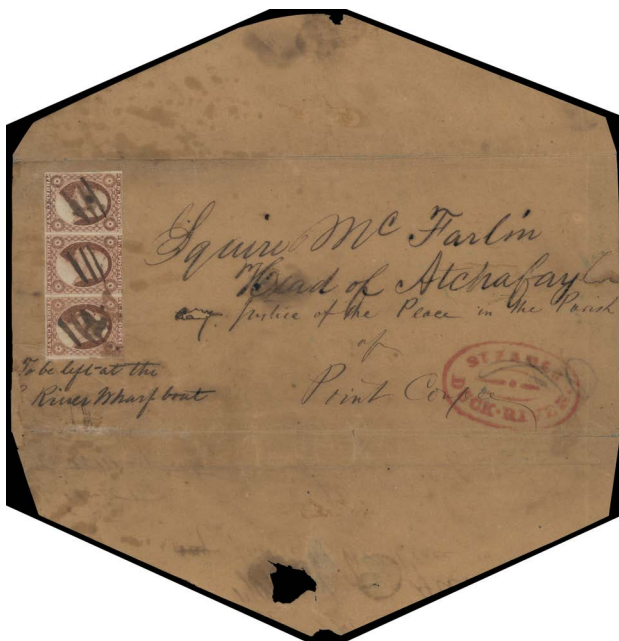 Squire Mc Farlin
Head of Atchafayla
any Justice of the Peace in the Parish
of
Point Coupee
To be left at the
River Wharf boat